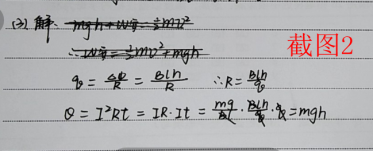 (3) 解: mgh+W安=½mv²
∴W安=½mv²+mgh
截图2
q=ΔΦ/R=Blh/R ∴R=Blh/q
Q=I²Rt=IR·It=mg/Bl·Blh/q·q=mgh